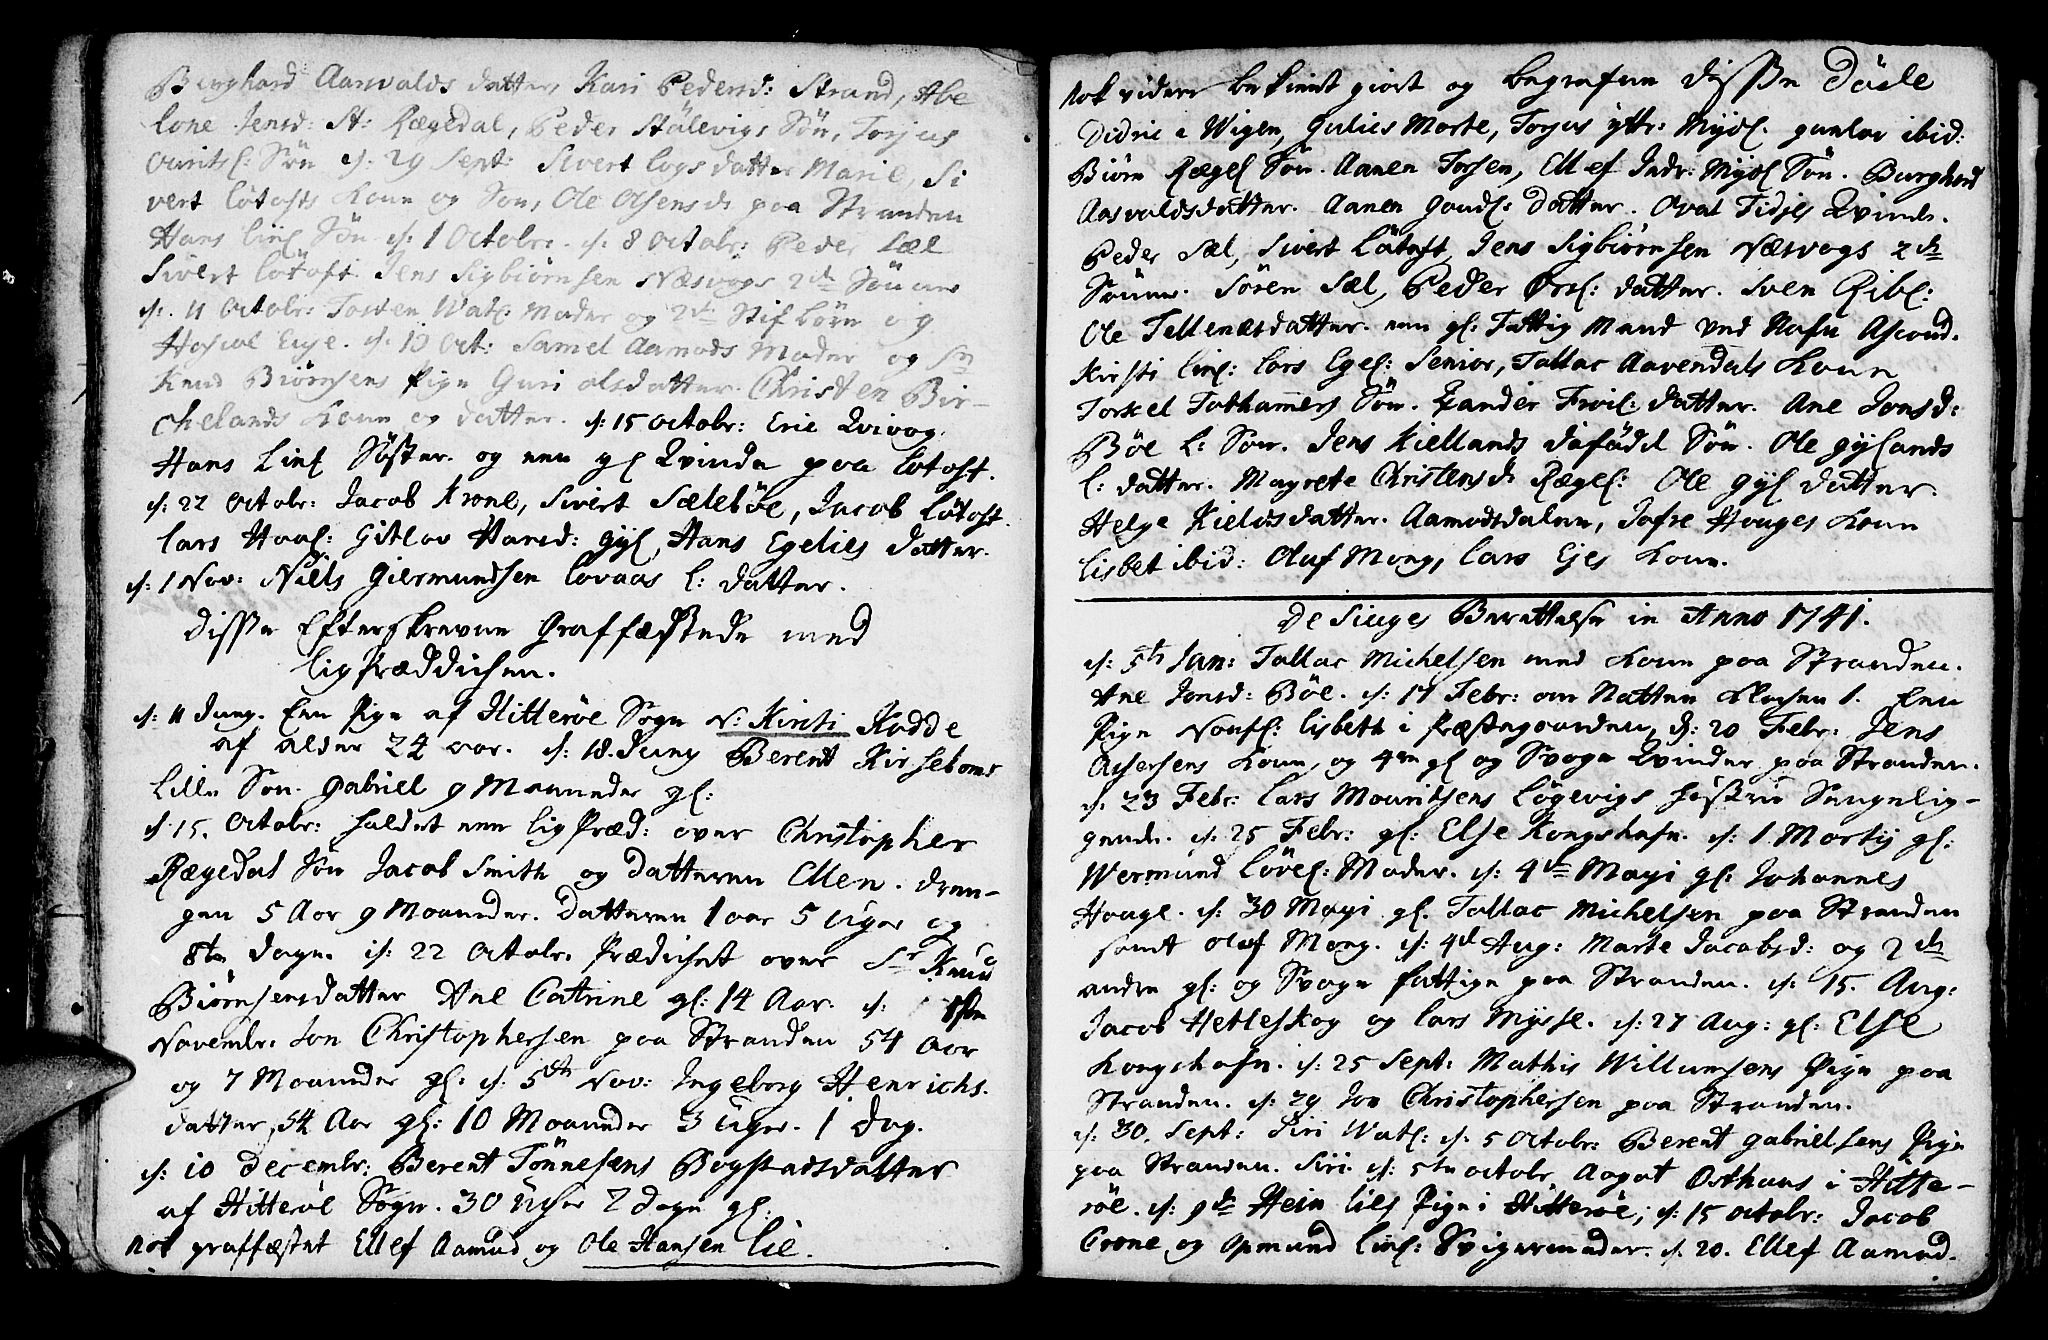 Burghard Aasvalds datter, Kari Pedersd: Strand, Abe
lone Jensd: St: Rægedal, Peder Stölevigs Sön, Torjus
Søn d: 29 Sept: Sivert logs datter Marie, Si
vert løtofts Kone og Søn, Ole Olsens d. paa Stranden
Hans line Sön d: 1 Octobr: d: 8 Octobr: Peder Sæl
Sivert lötoft Jens Sigbiørnsen Næsvogs 2de Sönner
d: 11 Octobr: Tosten Watl: Moder og 2de Stif börn og
Eije. d: 10 Oct: Samel Aamods Moder og Sr
Knud Biørnsens Pige Guri olsdatter. Christen Bir-
chelands Kone og datter. d: 15 octobr: Eric Qvivog.
Hans Line Söster. og een gl Qvinde paa lotoft.
d: 22 Octobr: Jacob Krone, Sivert Sæleböe, Jacob Lötoft.
Lars Haa: Gitlov Hansd: gyl, Hans Egelies datter.
d: 1 Nov: Niels Giermundsen lovaas l: datter.
Disse Efterskrevne Graffæstede med
ligprædichen.
d: 11 Jung. Een Pige af Hitterøe Sogn N: Kirsti Rodde
af alder 24 aar. d: 18. Juny Berent Kirseboms
Lille Søn. Gabriel 9 Maaneder gl:
d. 15. Octobr: holdet een ligPræd: over Christopher
Rægedal Sön Jacob Smith og datteren Ellen. dren-
gen 5 Aar 9 Maaneder. Datteren 1 aar 5 Uger og
8te dage. d: 22 Octobr. Prædichet over Sr Knud
Biørnsensdatter Ane Catrine gl: 14 Aar. d: 1ste
Novembr. Jon Christophersen paa Stranden 54 Aar
og 7 Maaneder gl: d: 5te Nov: Ingeborg Henrichs.
datter, 54 Aar gl: 10 Maaneder 3 uger. 1 dag.
d: 10 Decembr: Berent Tönnesens Bogstadsdatter
af Hitteröe Sogn. 30 Uger 2 dage gl.
noch graffæstet Ellef Aamud og Ole Hansen lie.
Nok videre bekient giort og begrafen disse Döde
Didric e Wigen, Gulies Marte, Torjus ytr: Mydl. gunlov ibid:
Biörn Rægel Sön. Aanen Torsen, Ellef Indr: Mydl Sön. Burghard
Aasvaldsdatter. Aanen datter. Oval Tidjes Qvinde.
Peder Sæl, Sivert Lötoft, Jens Sigbiørnsen Næsvogs 2de
Sönner. Sören Sæl, Peder Ørsl: datter. Sven Ribl:
Ole Tellenesdatter. een gl: Fattig Mand ved Nafn Asoud.
Kirsti line: Lars Egel: Senior, Tallac Aavendals Kone
Torkel Tothamers Sön. Zander Froil: datter. Ane Jonsd:
Böe l: Søn. Jens Kiellands döfödd Sön. Ole gylands
l: datter. Magrete Christensd: Rægel: Ole gyl datter.
Helge Kieldsdatter. Aamodsdalen, Jofre Houges Kone
Lisbet ibid: Oluf Mong, Lars Ejes Kone.
De Siuges Berettelse in Anno 1741.
d: 5te Jan: Tallac Michelsen med Kone paa Stranden.
Ane Jonsd: Böe. d: 17 Febr: om Natten klochen 1. Een
Pige Nonfl: lisbeth i Præstegaarden, d: 20 Febr: Jens
Assersens Kone, og 4re gl og Svage Qvinder paa Stranden.
d. 23 Febr: Lars Mouritsens Løgevigs höstrue Sengelig-
gende. d: 25 Febr: gl: Else Kongshafn. d: 1. Marty gl:
Wermund Løvel: Moder. d: 4de Mayi gl: Johannes
Houge. d: 30 Mayi gl. Tallac Michelsen paa Stranden
samt Oluf Mong. d: 4d Aug: Marte Jacobsd: og 2de
andre gl: og Svage Fattige paa Stranden. d: 15. Aug:
Jacob Hetleskog og Lars Mysse. d: 27 Aug: gl: Else
Kongshafn. d: 25 Sept: Mathis Willumsens Pige paa
Stranden. d: 29 Jon Christophersen paa Stranden.
d: 30. Sept: Siri Watl: d: 5 Octobr: Berent Gabrielsens Pige
paa Stranden. Siri. d: 5te Octobr Aagot Osthaus i Hitte-
röe. d: 9de Hein lies Pige i Hitteröe, d: 15 Octobr: Jacob
Crone og Opmund line: Svigermoder. d. 20. Ellef Aamod.